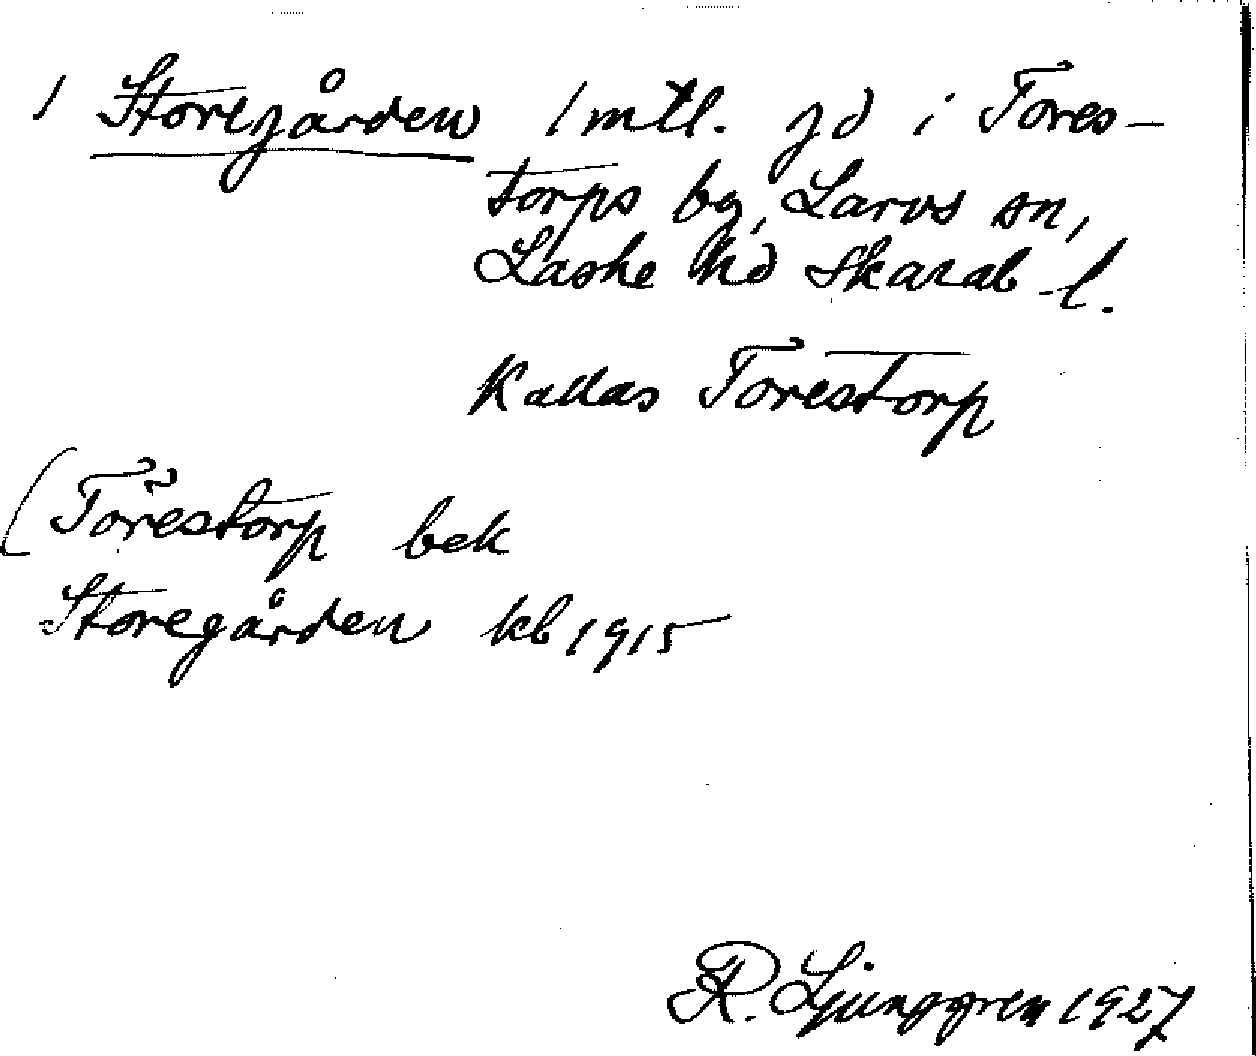 1 Storegården 1 mtl. gd i Tores-
torps by, Larvs sn,
Laske hd Skarab-l.
Kallas Torestorp
(Torestorp bek
Storegården kb 1915
R. Ljunggren 1927